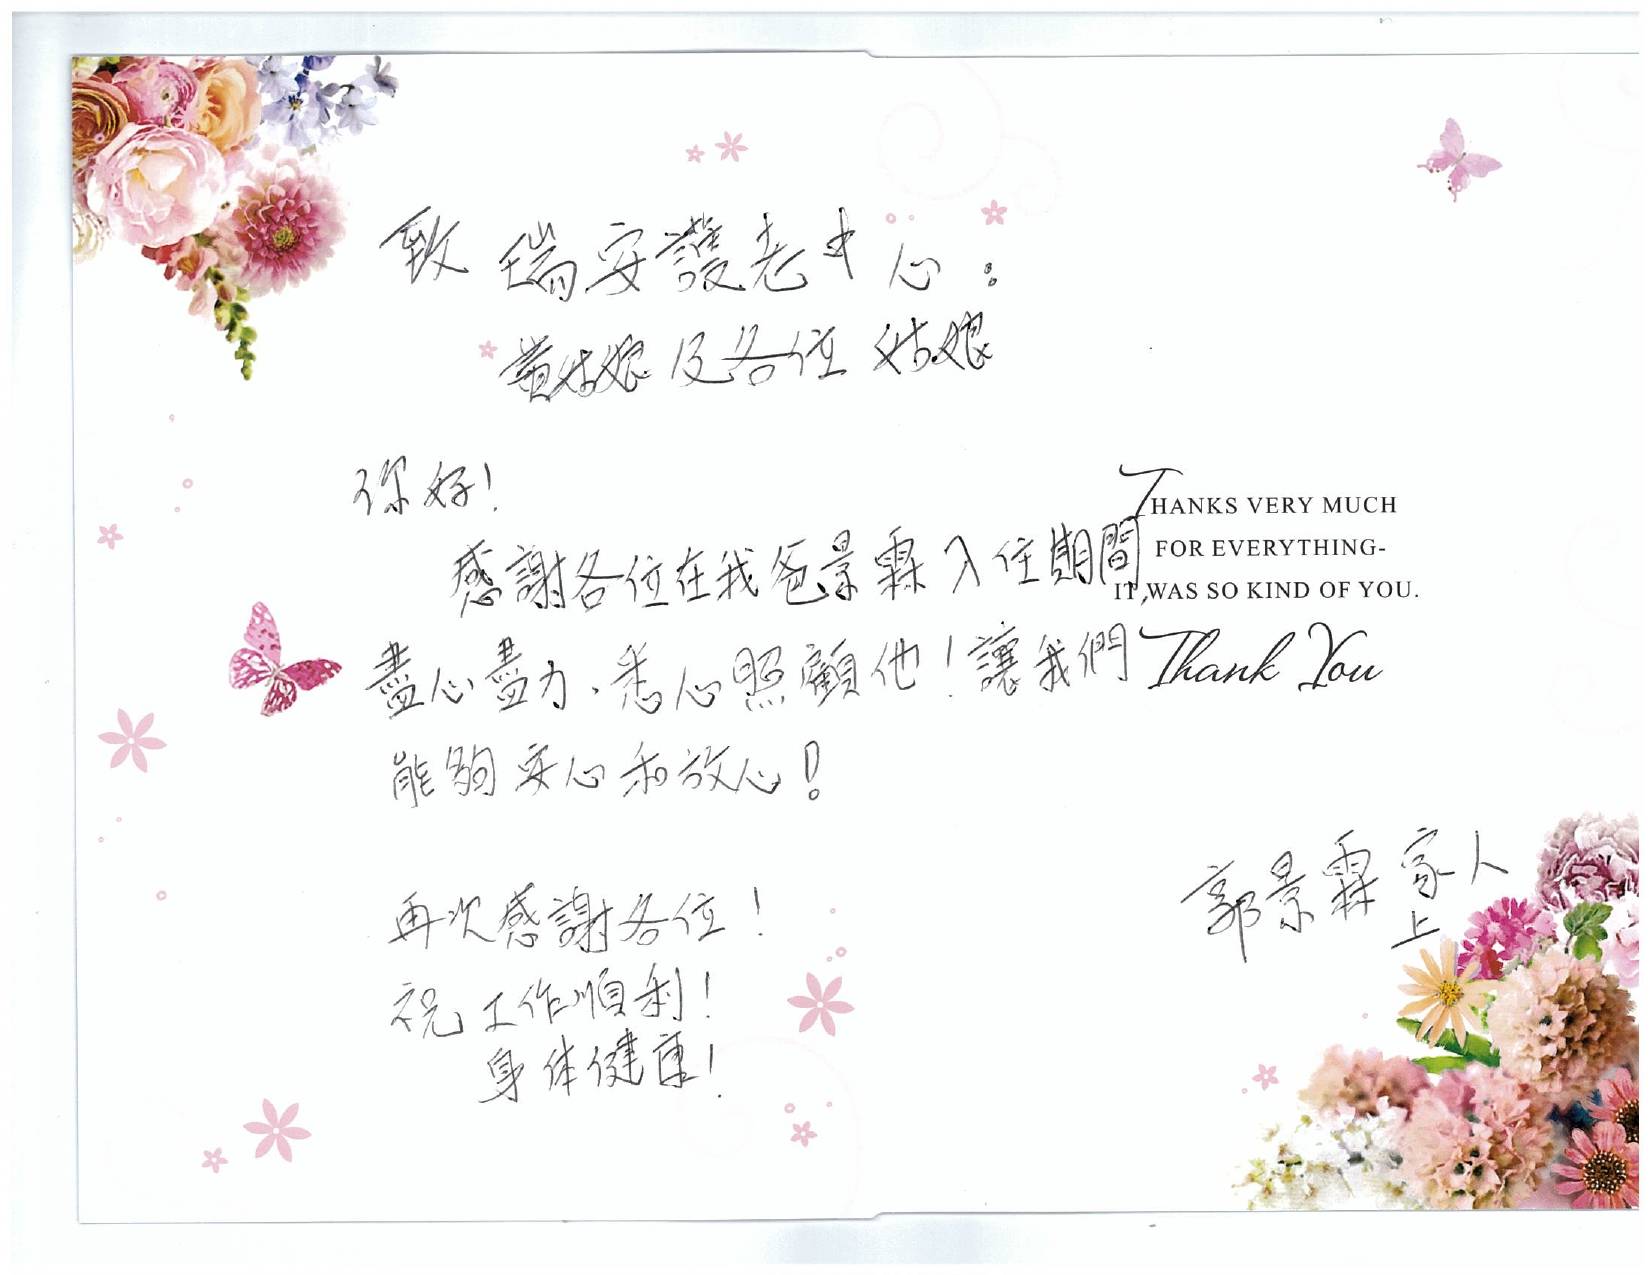 致 瑞安護老中心：
黃姑娘及各位姑娘
你好！
感謝各位在我爸景霖入住期間,
盡心盡力、悉心照顧他！讓我們
能夠安心和放心！
再次感謝各位！
祝工作順利！
身体健康！
THANKS VERY MUCH
FOR EVERYTHING-
IT WAS SO KIND OF YOU.
Thank You
郭景霖家人
上